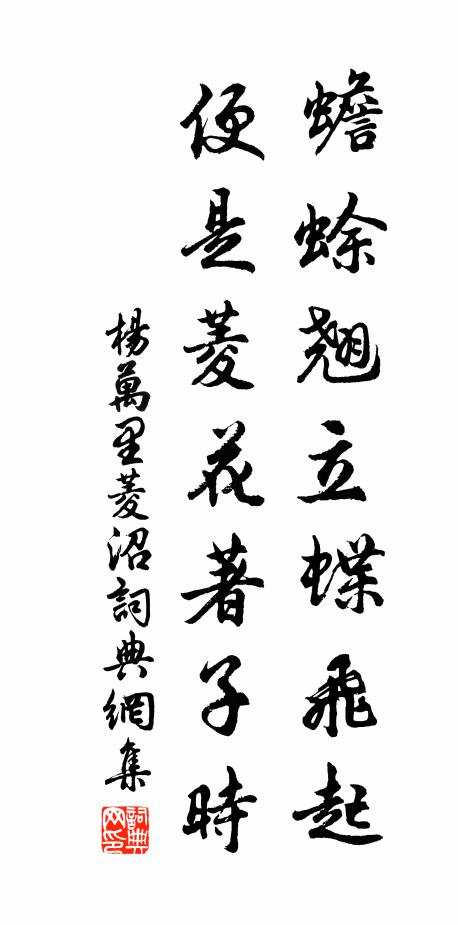 蟾蜍翹立蝶飛起
便是菱花著子時
楊萬里菱沼詞典網集
詞典
网印